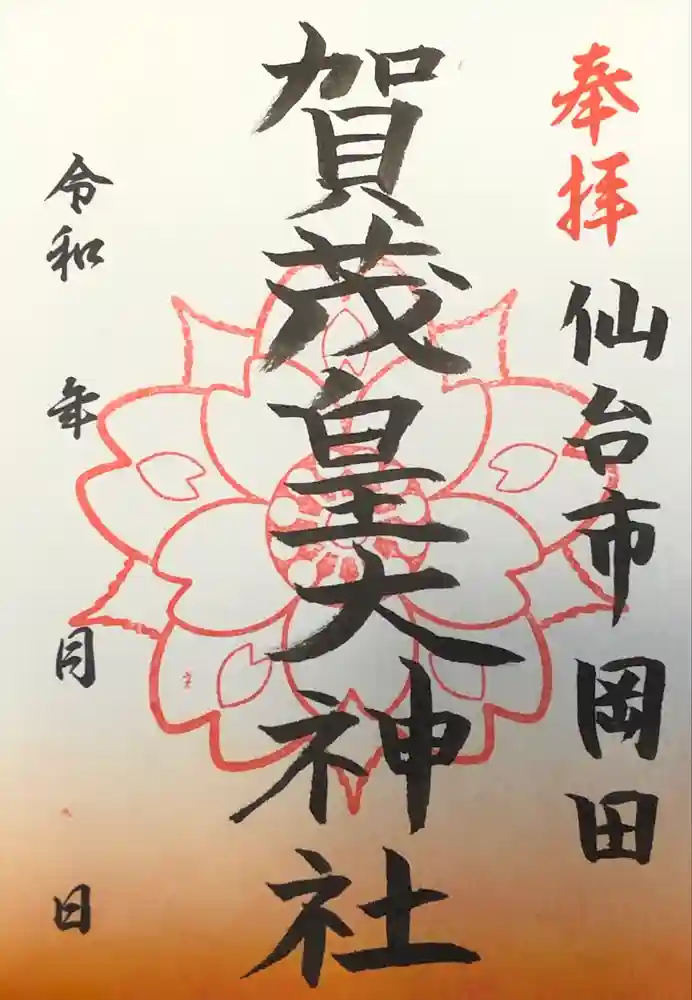 奉拝 仙台市岡田
賀茂皇大神社
令和 年 月 日